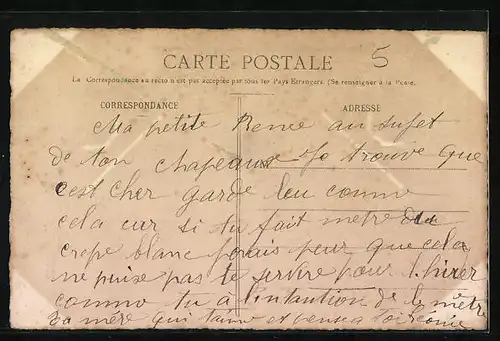 5
CARTE POSTALE
La Correspondance au recto n'est pas acceptée par tous les Pays Etrangers. (Se renseigner à la Poste.
CORRESPONDANCE
ADRESSE
Ma petite Renee au sujet
de ton chapeau Je trouve que
c'est cher garde leu comme
cela car si tu fait metre du
crepe blanc jorais peur que cela
ne puise pas te servire pour l'hiver
comme tu à l'intantion de le mètre
ta mére qui t'aime et pense a toi